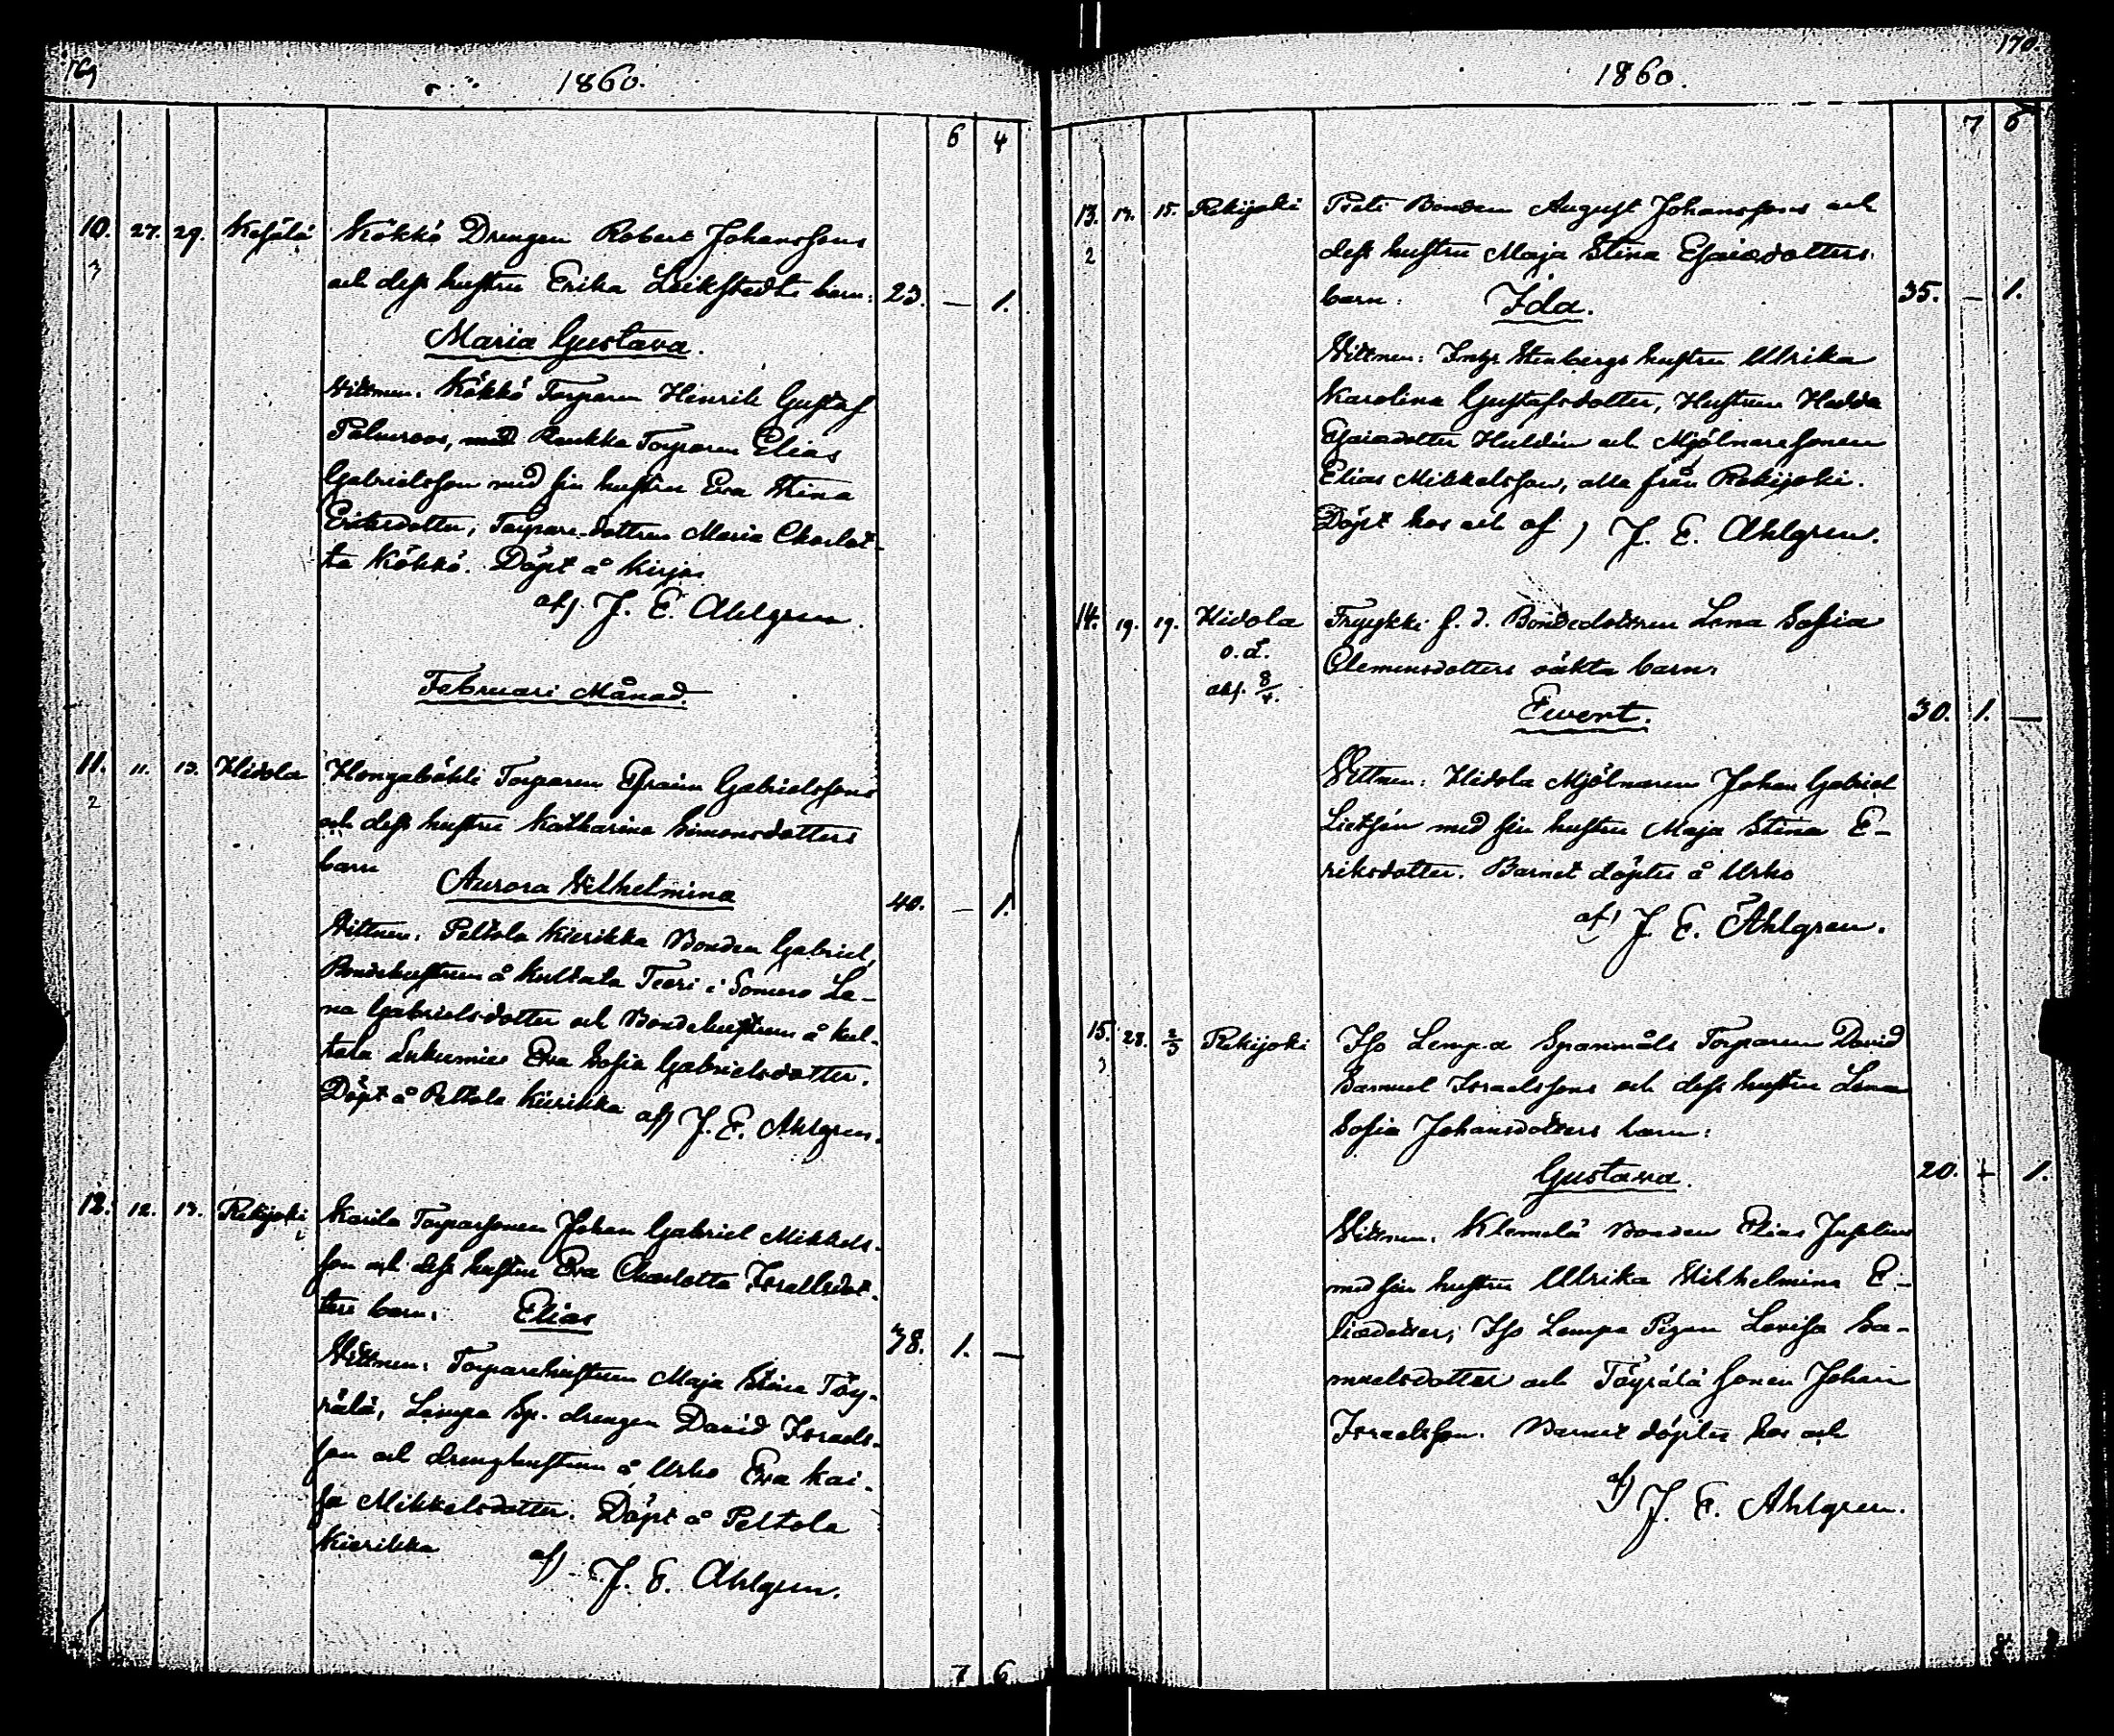 169
1860.
6 4
10. 27. 29. Kesälä Kökkö Drengen Robert Johanssons
3 och dess hustru Erika Leikstedts barn: 23. — 1.
Maria Gustava.
Vittnen: Kökkö Torparen Henrik Gustaf
Palmroos, med Raukka Torparen Elias
Gabrielsson med sin hustru Eva Stina
Eriksdotter, Torpare-dottren Maria Charlot-
ta Kökkö. Döpt å Kirjas
af) J. E. Ahlgren.
Februari Månad.
11. 11. 13. Hidola Hongabökli Torparen Efraim Gabrielssons
2 och dess hustru Katharina Simonsdotters
barn
Aurora Wilhelmina 40. — 1.
Vittnen: Peltola Kierikka Bonden Gabriel,
Bondehustrun å Kultala Teeri i Somero Le-
na Gabrielsdotter och Bondehustrun å Kul-
tala Eva Sofia Gabrielsdotter.
Döpt å Peltola Kierikka af) J. E. Ahlgren.
12. 12. 13. Rekijoki Karila Torparsonen Johan Gabriel Mikkels-
son och dess hustru Eva Charlotta Israelsdot-
ters barn: Elias 38. 1. —
Vittnen: Torparehustrun Maja Stina Töy-
rälä, Lempa Sp. drengen David Israels-
son och drenghustrun å Urho Eva Kai-
sa Mikkelsdotter. Döpt å Peltola
Kierikka af) J. E. Ahlgren.
7 6
170.
1860.
7 6
13. 13. 15. Rekijoki Prêti Bonden August Johanssons och
2 dess hustru Maja Stina Esaiædotters
barn: Ida. 35. — 1.
Vittnen: Inhys Stenbergs hustru Ulrika
Karolina Gustafsdotter, Hustrun Hedda
Esaiædotter Huldén och Mjölnaresonen
Elias Mikkelsson, alla från Rekijoki.
Döpt hos och af) J. E. Ahlgren.
14. 19. 19. Hidola Fryykki f. d. Bondedottren Lena Sofia
o.ä. Clemensdotters oäkta barn:
abs. 8/4.
Ewert. 30. 1. —
Vittnen: Hidola Mjölnaren Johan Gabriel
Lietsén med sin hustru Maja Stina E-
riksdotter. Barnet döptes å Urho
af) J. E. Ahlgren.
15. 28. 2/3 Rekijoki Iso Lempa Spanmåls Torparen David
3 Samuel Israelssons och dess hustru Lena
Sofia Johansdotters barn:
Gustava. 20. — 1.
Vittnen: Klemelä Bonden Elias Juselius
med sin hustru Ulrika Wilhelmina E-
liædotter; Iso Lempa Pigan Lovisa Sa-
muelsdotter och Töyrälä sonen Johan
Israelsson. Barnet döptes hos och
af) J. E. Ahlgren.
8